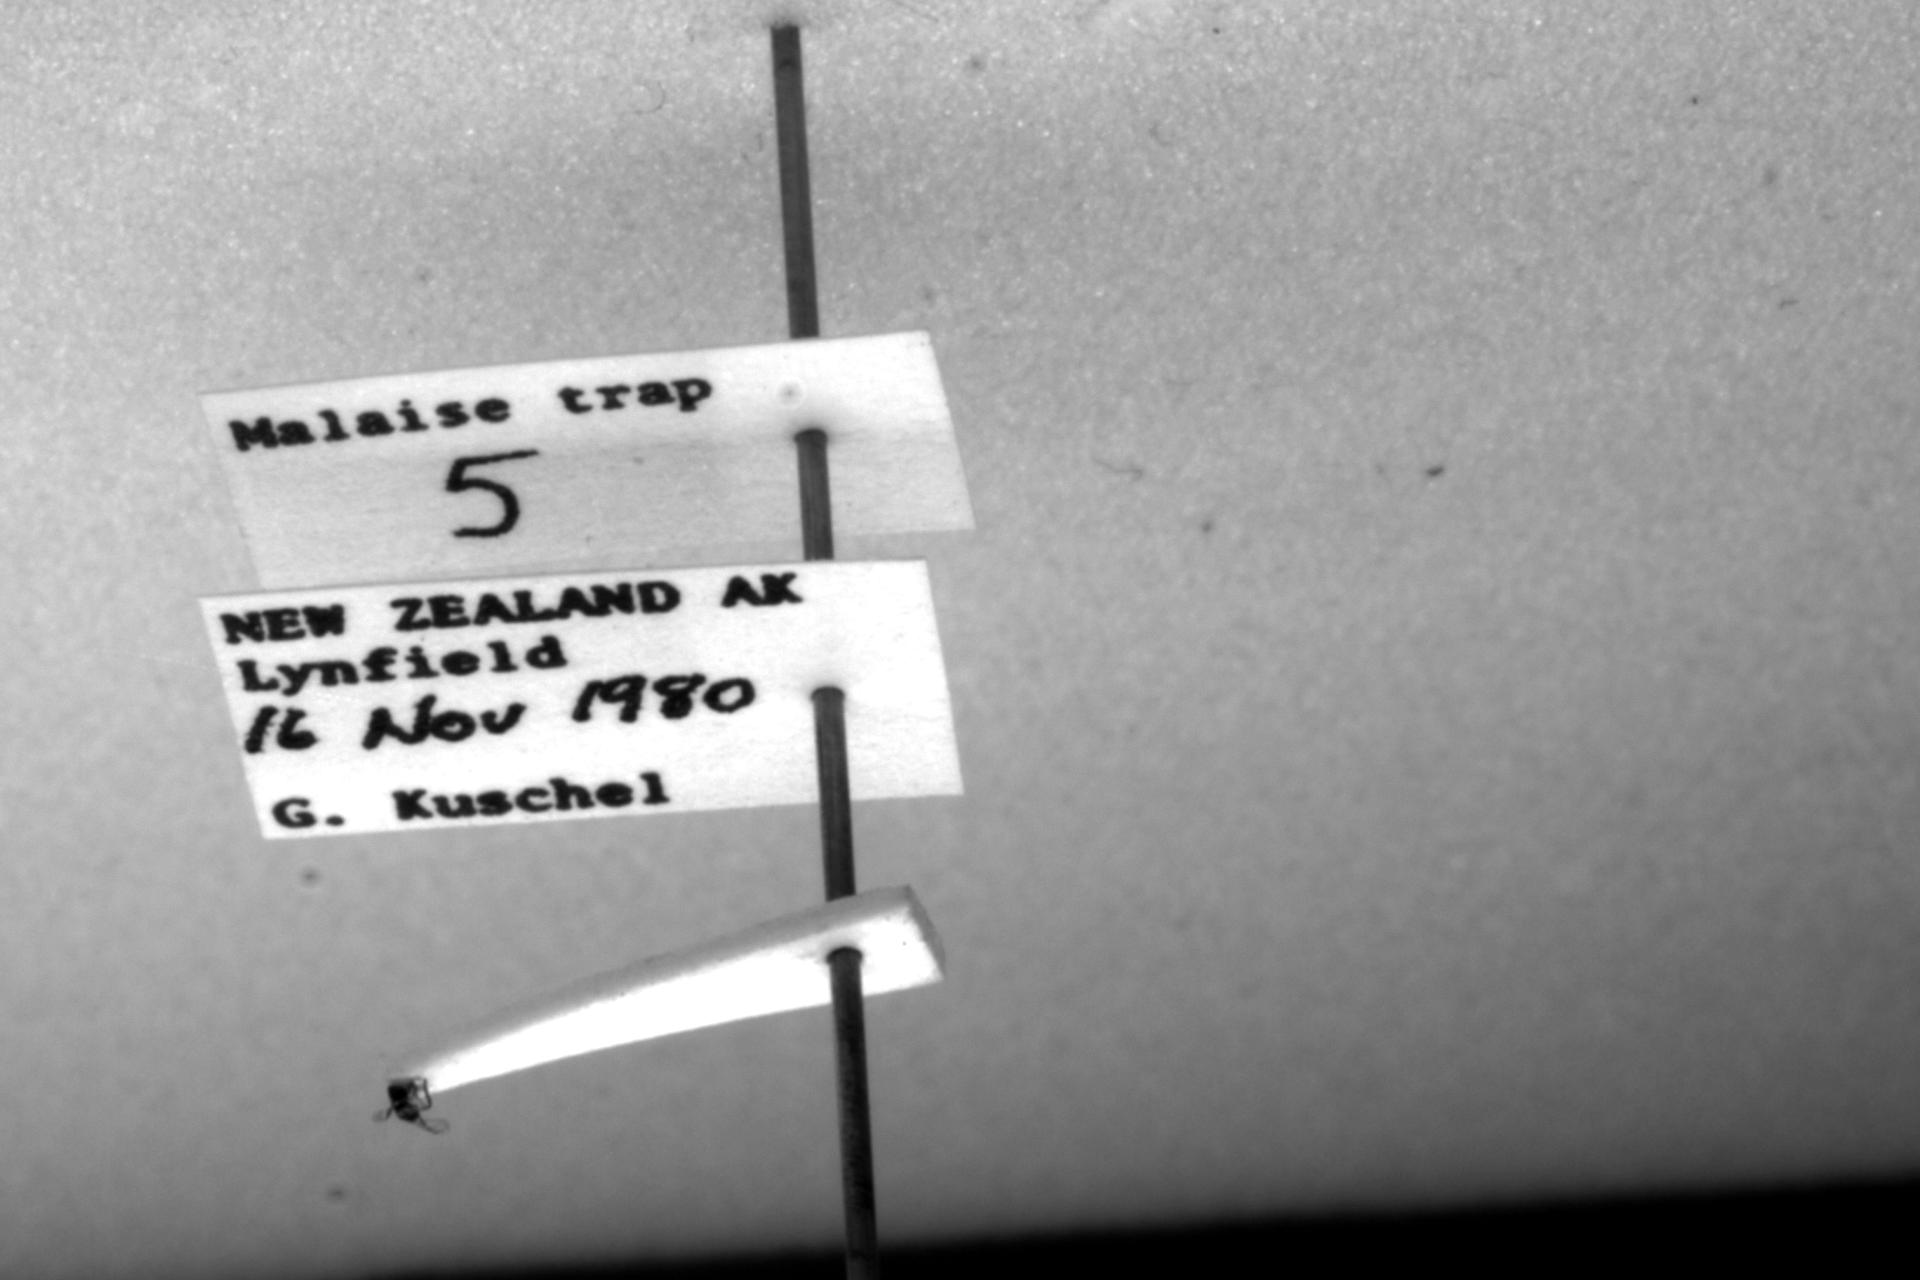 Malaise trap
5
NEW ZEALAND AK
Lynfield
16 Nov 1980
G. Kuschel